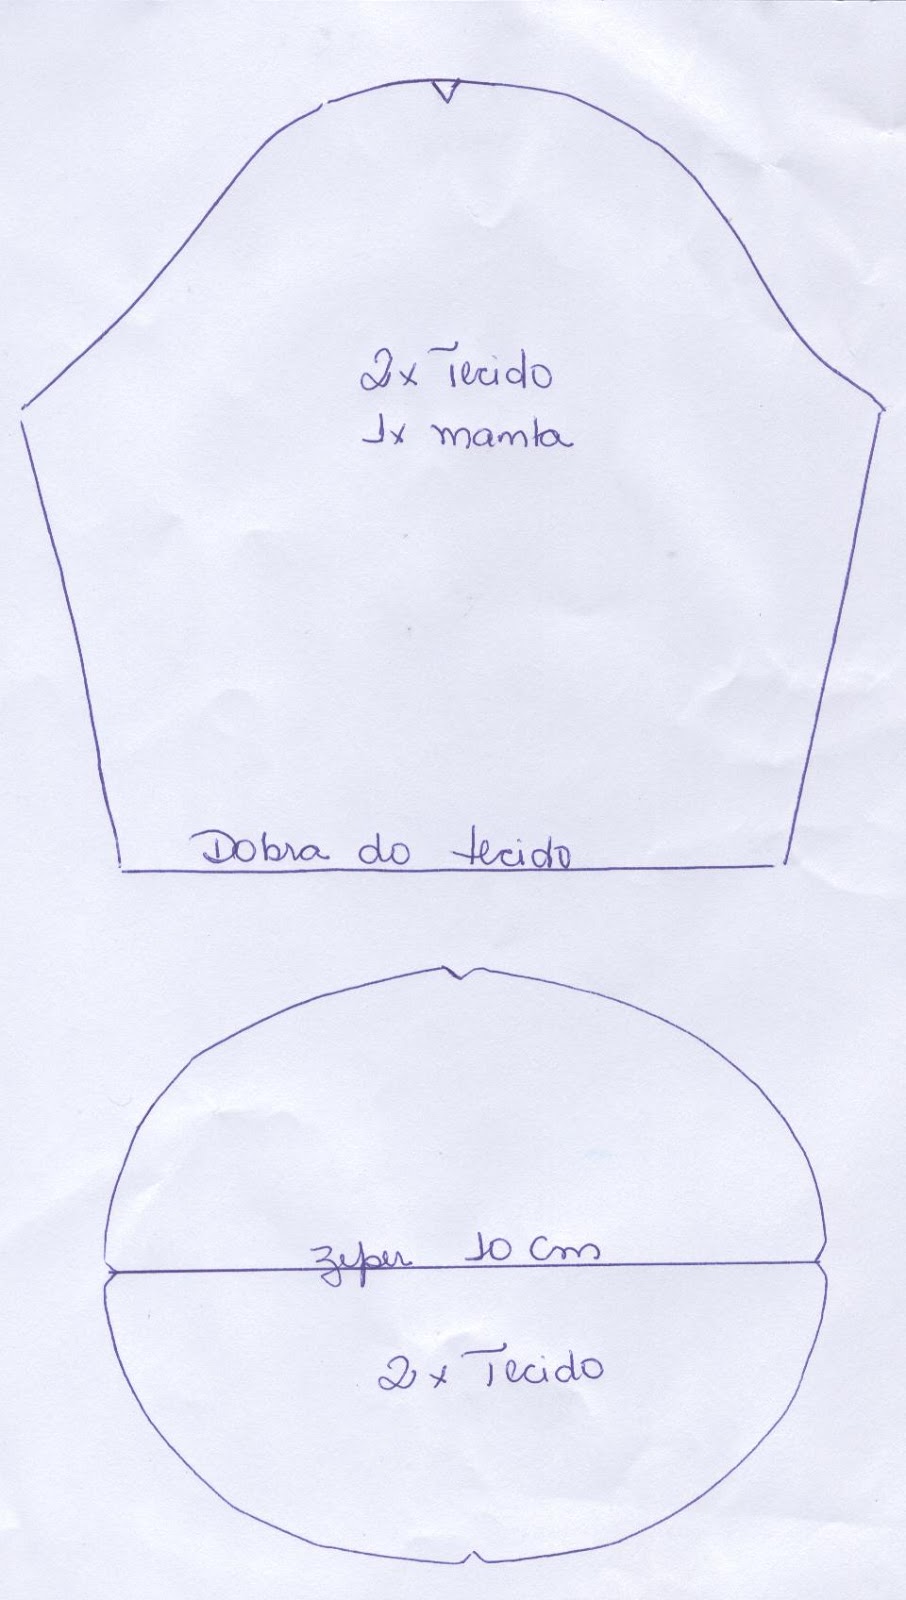 2x Tecido
1x manta
Dobra do tecido
Zeper 10 cm
2x Tecido